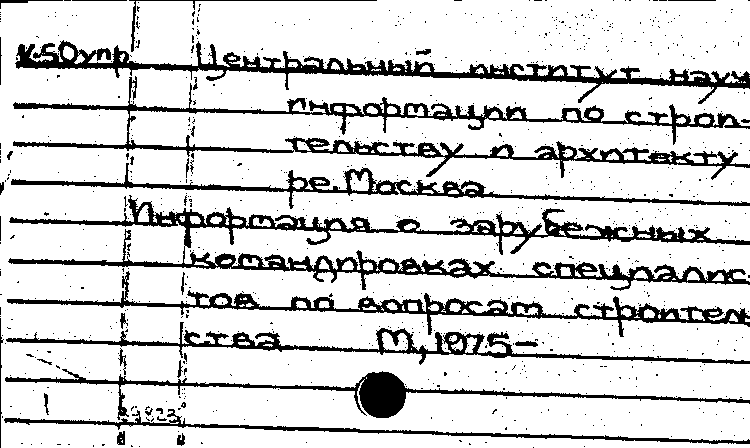 И.50упр Центральный институт науч
информации по строи-
тельству и архитекту
ре. Москва
Информация о зарубежных
командировках специалис-
тов по вопросам строитель
ства М, 1975-
1 89823